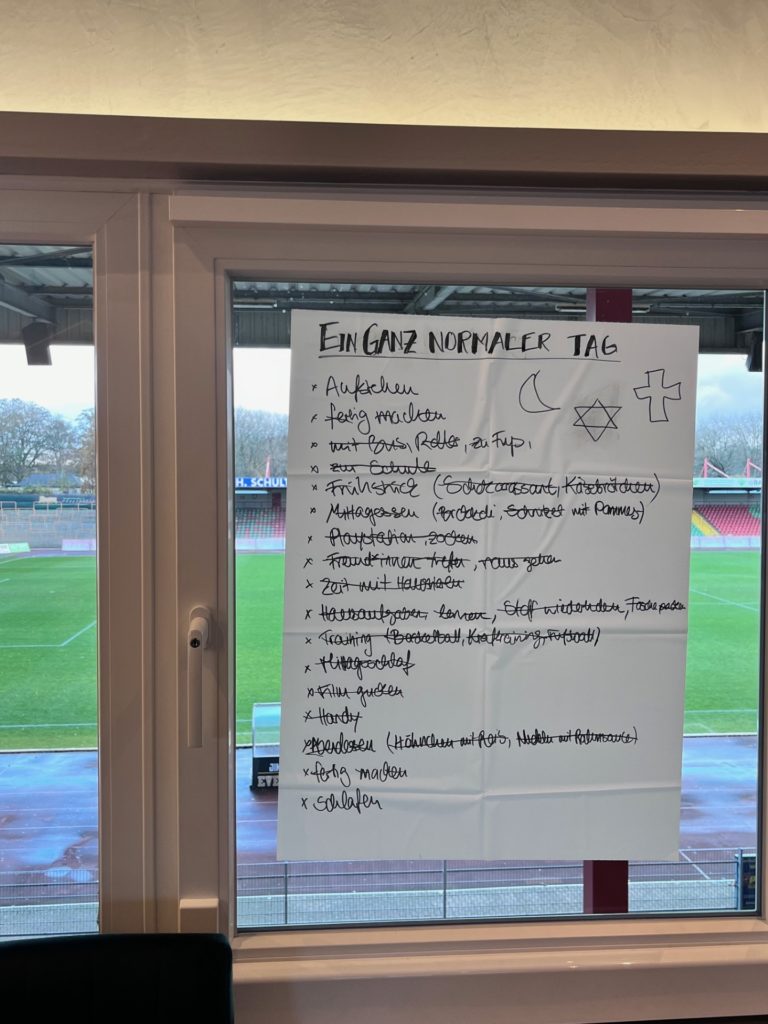 EIN GANZ NORMALER TAG
x Aufstehen
x fertig machen
x mit Bus, Roller, zu Fuß,
x zur Schule
x Frühstück (Schokocroissant, Käsebrötchen)
x Mittagessen (Brokkoli, Schnitzel mit Pommes)
x Playstation zocken
x Freund*innen treffen, raus gehen
x Zeit mit Haustieren
x Hausaufgaben, lernen, Stoff wiederholen, Tasche packen
x Training (Basketball, Krafttraining, Fußball)
x Mittagsschlaf
x Film gucken
x Handy
x Abendessen (Hähnchen mit Reis, Nudeln mit)
x fertig machen
x schlafen
H. SCHULT